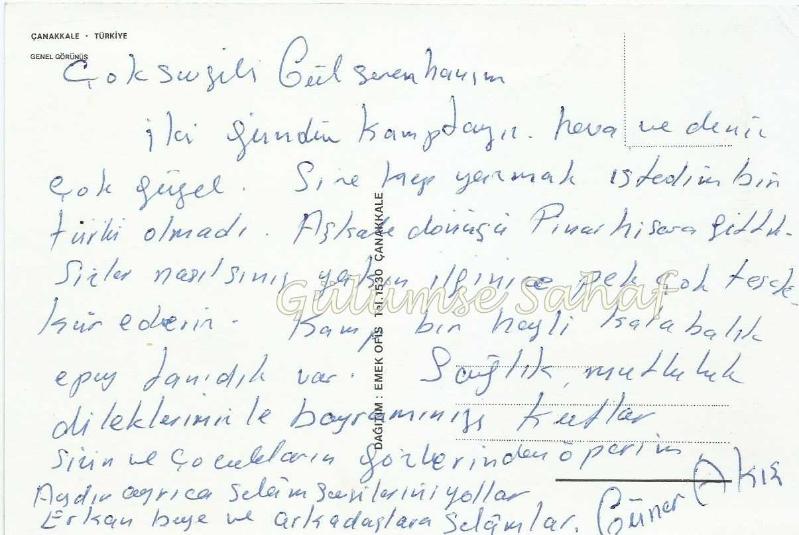 ÇANAKKALE - TÜRKİYE
GENEL GÖRÜNÜŞ
Çok sevgili Gülseren hanım
iki gündür kamptayız. hava ve deniz
çok güzel. Size hep yazmak istedim bin
türlü olmadı. Aşkale dönüşü Pınarhisara gittik.
Sizler nasılsınız yakın ilginize pek çok teşek-
kür ederim. Kamp bin hayli kalabalık
epey tanıdık var. Sağlık, mutluluk
dileklerimle bayramınızı kutlar
sizin ve çocukların gözlerinden öperim
Aydın ayrıca selâm sevgilerini yollar
Erkan beye ve arkadaşlara selâmlar. Güner Akış
DAĞITIM : EMEK OFİS Tel. 1530 ÇANAKKALE
Gülümse Sahaf